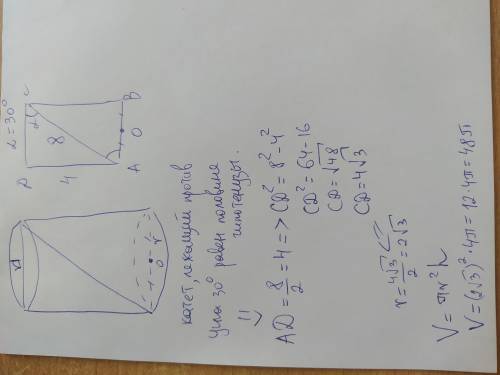 α = 30°
D
C
α
8
4
A
O
B
O
r
катет, лежащий против
угла 30° равен половине
гипотенузы.
AD = 8/2 = 4 => CD² = 8² - 4²
CD² = 64 - 16
CD = √48
CD = 4√3
r = 4√3/2 = 2√3
V = πr²h
V = (2√3)² · 4π = 12 · 4π = 48π